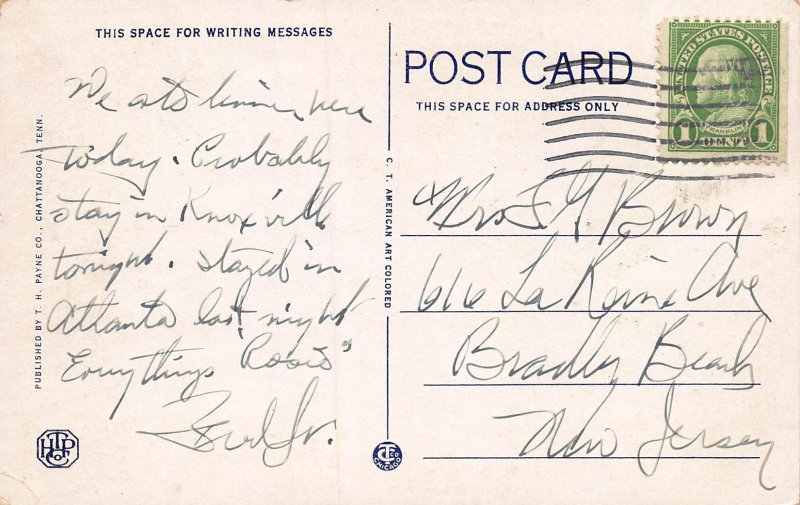 THIS SPACE FOR WRITING MESSAGES
We ate dinner here
Today. Probably
stay in Knoxville
tonight. Stayed in
Atlanta last night
Everythings Rosie"
Fred Jr.
PUBLISHED BY T. H. PAYNE CO., CHATTANOOGA, TENN.
C. T. AMERICAN ART COLORED
CHICAGO
POST CARD
THIS SPACE FOR ADDRESS ONLY
UNITED STATES POSTAGE
FRANKLIN
1 CENT 1
Mrs F. G. Brown
616 La Reine Ave
Bradley Beach
New Jersey